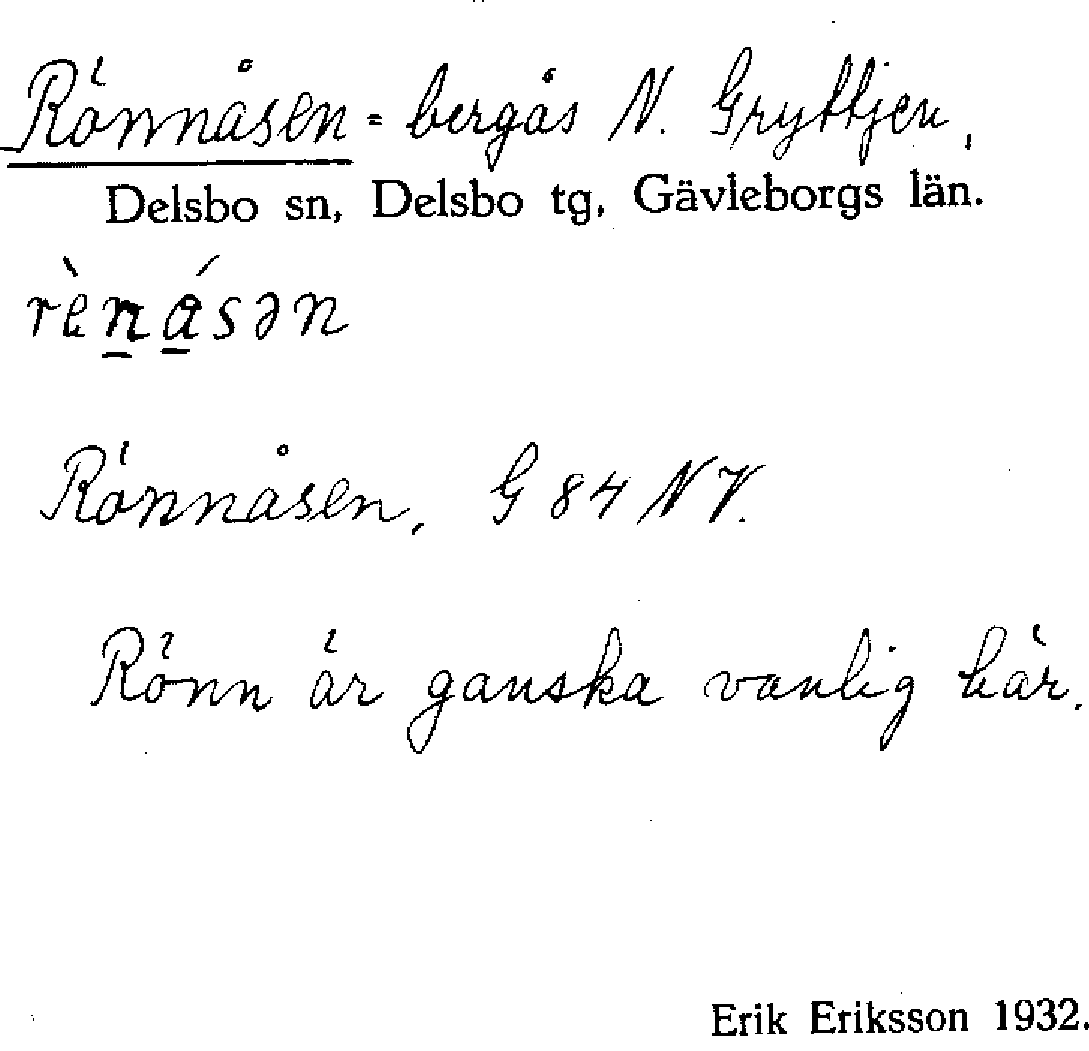 Rönnåsen = bergås N. Gryttjen,
Delsbo sn, Delsbo tg, Gävleborgs län.
rèn̲á̲sən
Rönnåsen, G 84 NV.
Rönn är ganska vanlig här.
Erik Eriksson 1932.